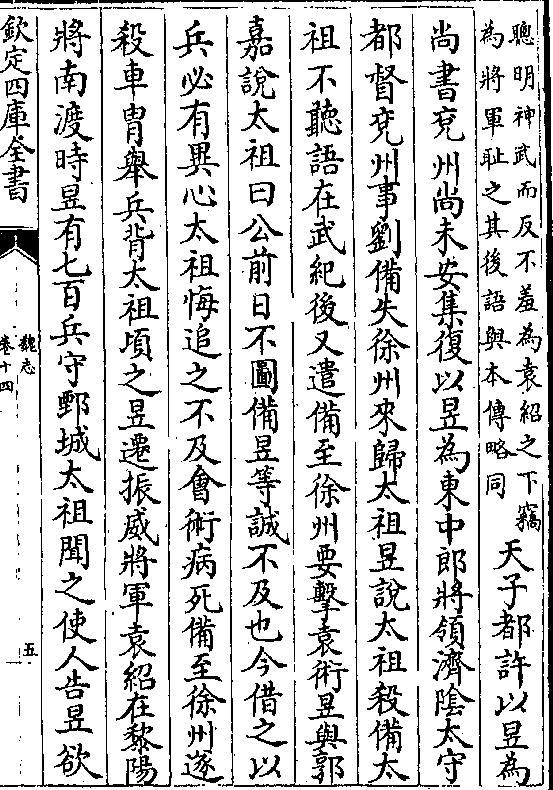 聰明神武而反不羞為袁紹之下竊
為將軍耻之其後語與本傳略同
天子都許以昱為
尚書兗州尚未安集復以昱為東中郎將領濟陰太守
都督兗州事劉備失徐州來歸太祖昱說太祖殺備太
祖不聽語在武紀後又遣備至徐州要擊袁術昱與郭
嘉說太祖曰公前日不圖備昱等誠不及也今借之以
兵必有異心太祖悔追之不及會術病死備至徐州遂
殺車胄舉兵背太祖頃之昱遷振威將軍袁紹在黎陽
將南渡時昱有七百兵守鄄城太祖聞之使人告昱欲
欽定四庫全書
魏志
卷十四
五